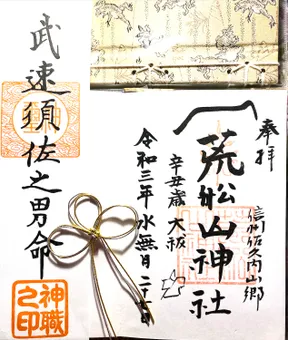 奉拝
信州佐久内山郷
荒船山神社
辛丑歳 大祓
令和三年 水無月 二十一日
武速須佐之男命
神職之印